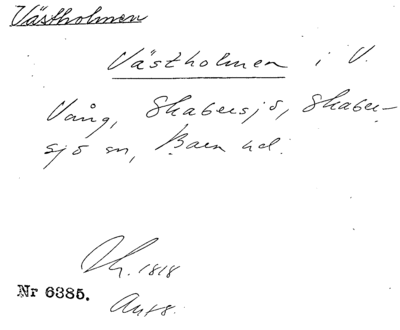 Västholmen
Västholmen i V.
Vång, Skabersjö, Skaber-
sjö sn, Bara hd.
1818
Nr 6385.